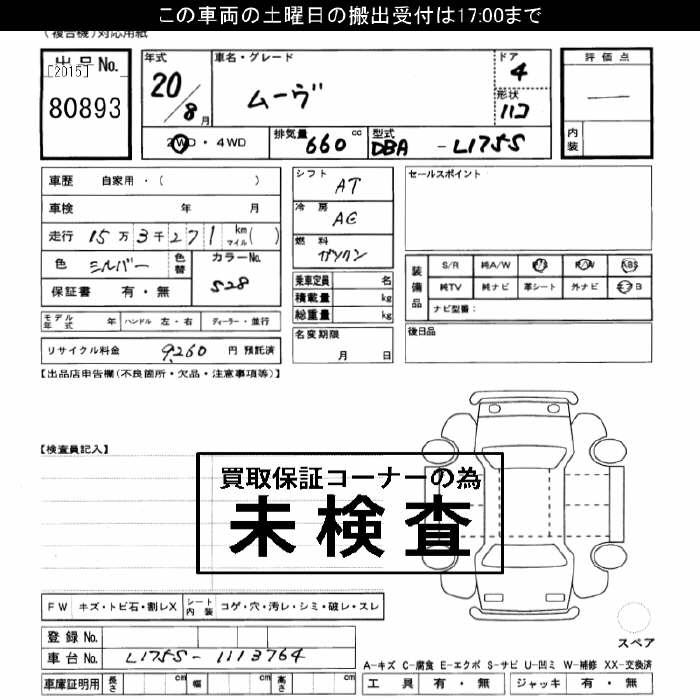 この車両の土曜日の搬出受付は17:00まで
(複合機)対応用紙
出品No.
[2015]
80893
年式
20/8月
車名・グレード
ムーヴ
ドア
4
形状
ハコ
評価点
—
内装
2WD・4WD
排気量 660 cc
型式 DBA - L175S
車歴 自家用・( )
車検 年 月
走行 15万3千271 km マイル( )
色 シルバー
色替
カラーNo.
S28
保証書 有・無
モデル年式 年
ハンドル 左・右
ディーラー・並行
リサイクル料金 9,260 円 預託済
シフト
AT
冷房
AC
燃料
ガソリン
乗車定員 名
積載量 kg
総重量 kg
名変期限
月 日
セールスポイント
装備品
S/R 純A/W P/S P/W ABS
純TV 純ナビ 革シート 外ナビ エアB
ナビ型番:
後日品
【出品店申告欄(不良箇所・欠品・注意事項等)】
【検査員記入】
買取保証コーナーの為
未検査
FW キズ・トビ石・割レX
シート内装 コゲ・穴・汚レ・シミ・破レ・スレ
登録No.
車台No. L175S-1113764
車庫証明用 長さ cm 幅 cm 高さ cm
スペア
A-キズ C-腐食 E-エクボ S-サビ U-凹ミ W-補修 XX-交換済
工具 有・無 ジャッキ 有・無